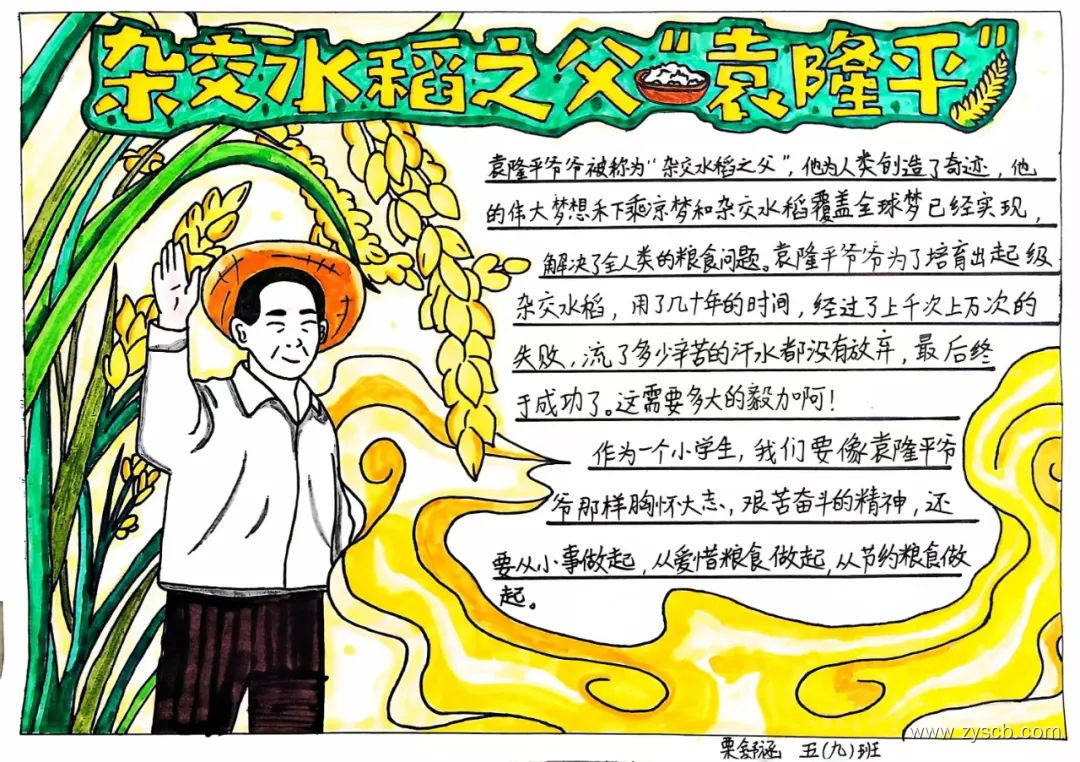 杂交水稻之父"袁隆平"
袁隆平爷爷被称为"杂交水稻之父"，他为人类创造了奇迹，他
的伟大梦想禾下乘凉梦和杂交水稻覆盖全球梦已经实现，
解决了全人类的粮食问题。袁隆平爷爷为了培育出起级
杂交水稻，用了几十年的时间，经过了上千次上万次的
失败，流了多少辛苦的汗水都没有放弃，最后终
于成功了。这需要多大的毅力啊！
作为一个小学生，我们要像袁隆平爷
爷那样胸怀大志，艰苦奋斗的精神，还
要从小事做起，从爱惜粮食做起，从节约粮食做
起。
栗舒涵 五(九)班
www.zyscb.com